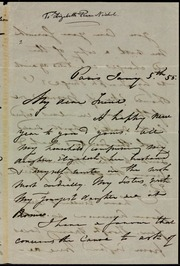 To Elizabeth Pease Nichol
Paris Jany 5th 55.
My dear Friend
A happy New
year to you & yours! all
my household comprising my
daughter Elizabeth, her husband
& myself unite in the
most cordially. My sisters with
My youngest daughter are at
Rome.
I have a favour that
concerns the Cause to ask of